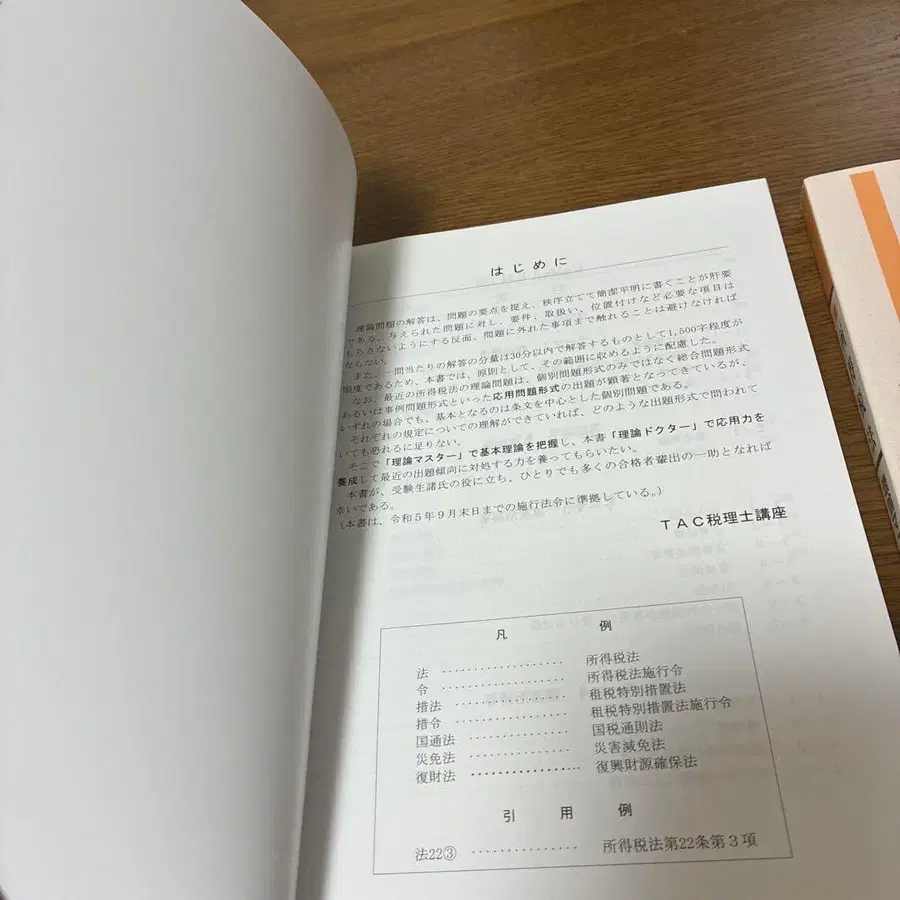 はじめに
理論問題の解答は、問題の要点を捉え、秩序立てて簡潔平明に書くことが肝要
である。与えられた問題に対し、要件、取扱い、位置付けなど必要な項目は
もらさないようにする反面、問題に外れた事項まで触れることは避けなければ
ならない。
また、一問当たりの解答の分量は30分以内で解答するものとして1,500字程度が
限度であるため、本書では、原則として、その範囲に収めるように配慮した。
なお、最近の所得税法の理論問題は、個別問題形式のみではなく総合問題形式
あるいは事例問題形式といった応用問題形式の出題が顕著となってきているが、
いずれの場合でも、基本となるのは条文を中心とした個別問題である。
それぞれの規定についての理解ができていれば、どのような出題形式で問われて
いても恐れるに足りない。
そこで「理論マスター」で基本理論を把握し、本書「理論ドクター」で応用力を
養成して最近の出題傾向に対処する力を養ってもらいたい。
本書が、受験生諸氏の役に立ち、ひとりでも多くの合格者輩出の一助となれば
幸いである。
(本書は、令和5年9月末日までの施行法令に準拠している。)
TAC税理士講座
凡 例
法 ………………… 所得税法
令 ………………… 所得税法施行令
措法 ………………… 租税特別措置法
措令 ………………… 租税特別措置法施行令
国通法 ………………… 国税通則法
災免法 ………………… 災害減免法
復財法 ………………… 復興財源確保法
引 用 例
法22③ ……………… 所得税法第22条第3項